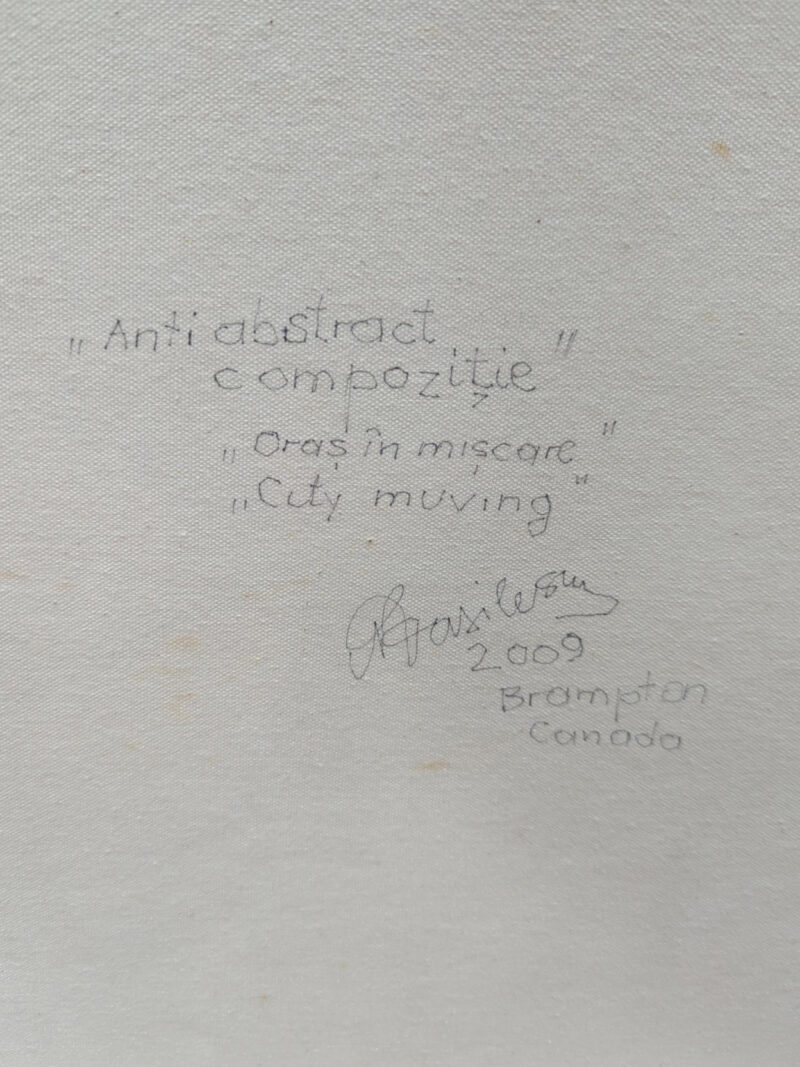 „Anti abstract
compoziție"
„Oraș în mișcare"
„City muving"
Vasilescu
2009
Brampton
Canada